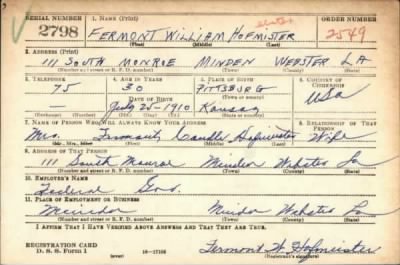 SERIAL NUMBER 1. NAME (Print) ORDER NUMBER
2798 FERMONT WILLIAM HOFMISTER 2549
(First) (Middle) (Last)
2. ADDRESS (Print)
111 SOUTH MONROE MINDEN WEBSTER LA
(Number and street or R. F. D. number) (Town) (County) (State)
3. TELEPHONE 4. AGE IN YEARS 5. PLACE OF BIRTH 6. COUNTRY OF CITIZENSHIP
75 30 PITTSBURG USA
DATE OF BIRTH (Town or county)
July 25-1910 Kansas
(Mo.) (Day) (Yr.) (State or country)
7. NAME OF PERSON WHO WILL ALWAYS KNOW YOUR ADDRESS 8. RELATIONSHIP OF THAT PERSON
Mrs. Hofmister Wife
(Mr., Mrs., Miss) (First) (Middle) (Last)
9. ADDRESS OF THAT PERSON
111 South Monroe Minden Webster La
(Number and street or R. F. D. number) (Town) (County) (State)
10. EMPLOYER'S NAME
Federal Gov.
11. PLACE OF EMPLOYMENT OR BUSINESS
Minden Minden Webster La
(Number and street or R. F. D. number) (Town) (County) (State)
I AFFIRM THAT I HAVE VERIFIED ABOVE ANSWERS AND THAT THEY ARE TRUE.
REGISTRATION CARD
D. S. S. Form 1 (over) 16-17105 Fermont W Hofmeister
(Registrant's signature)